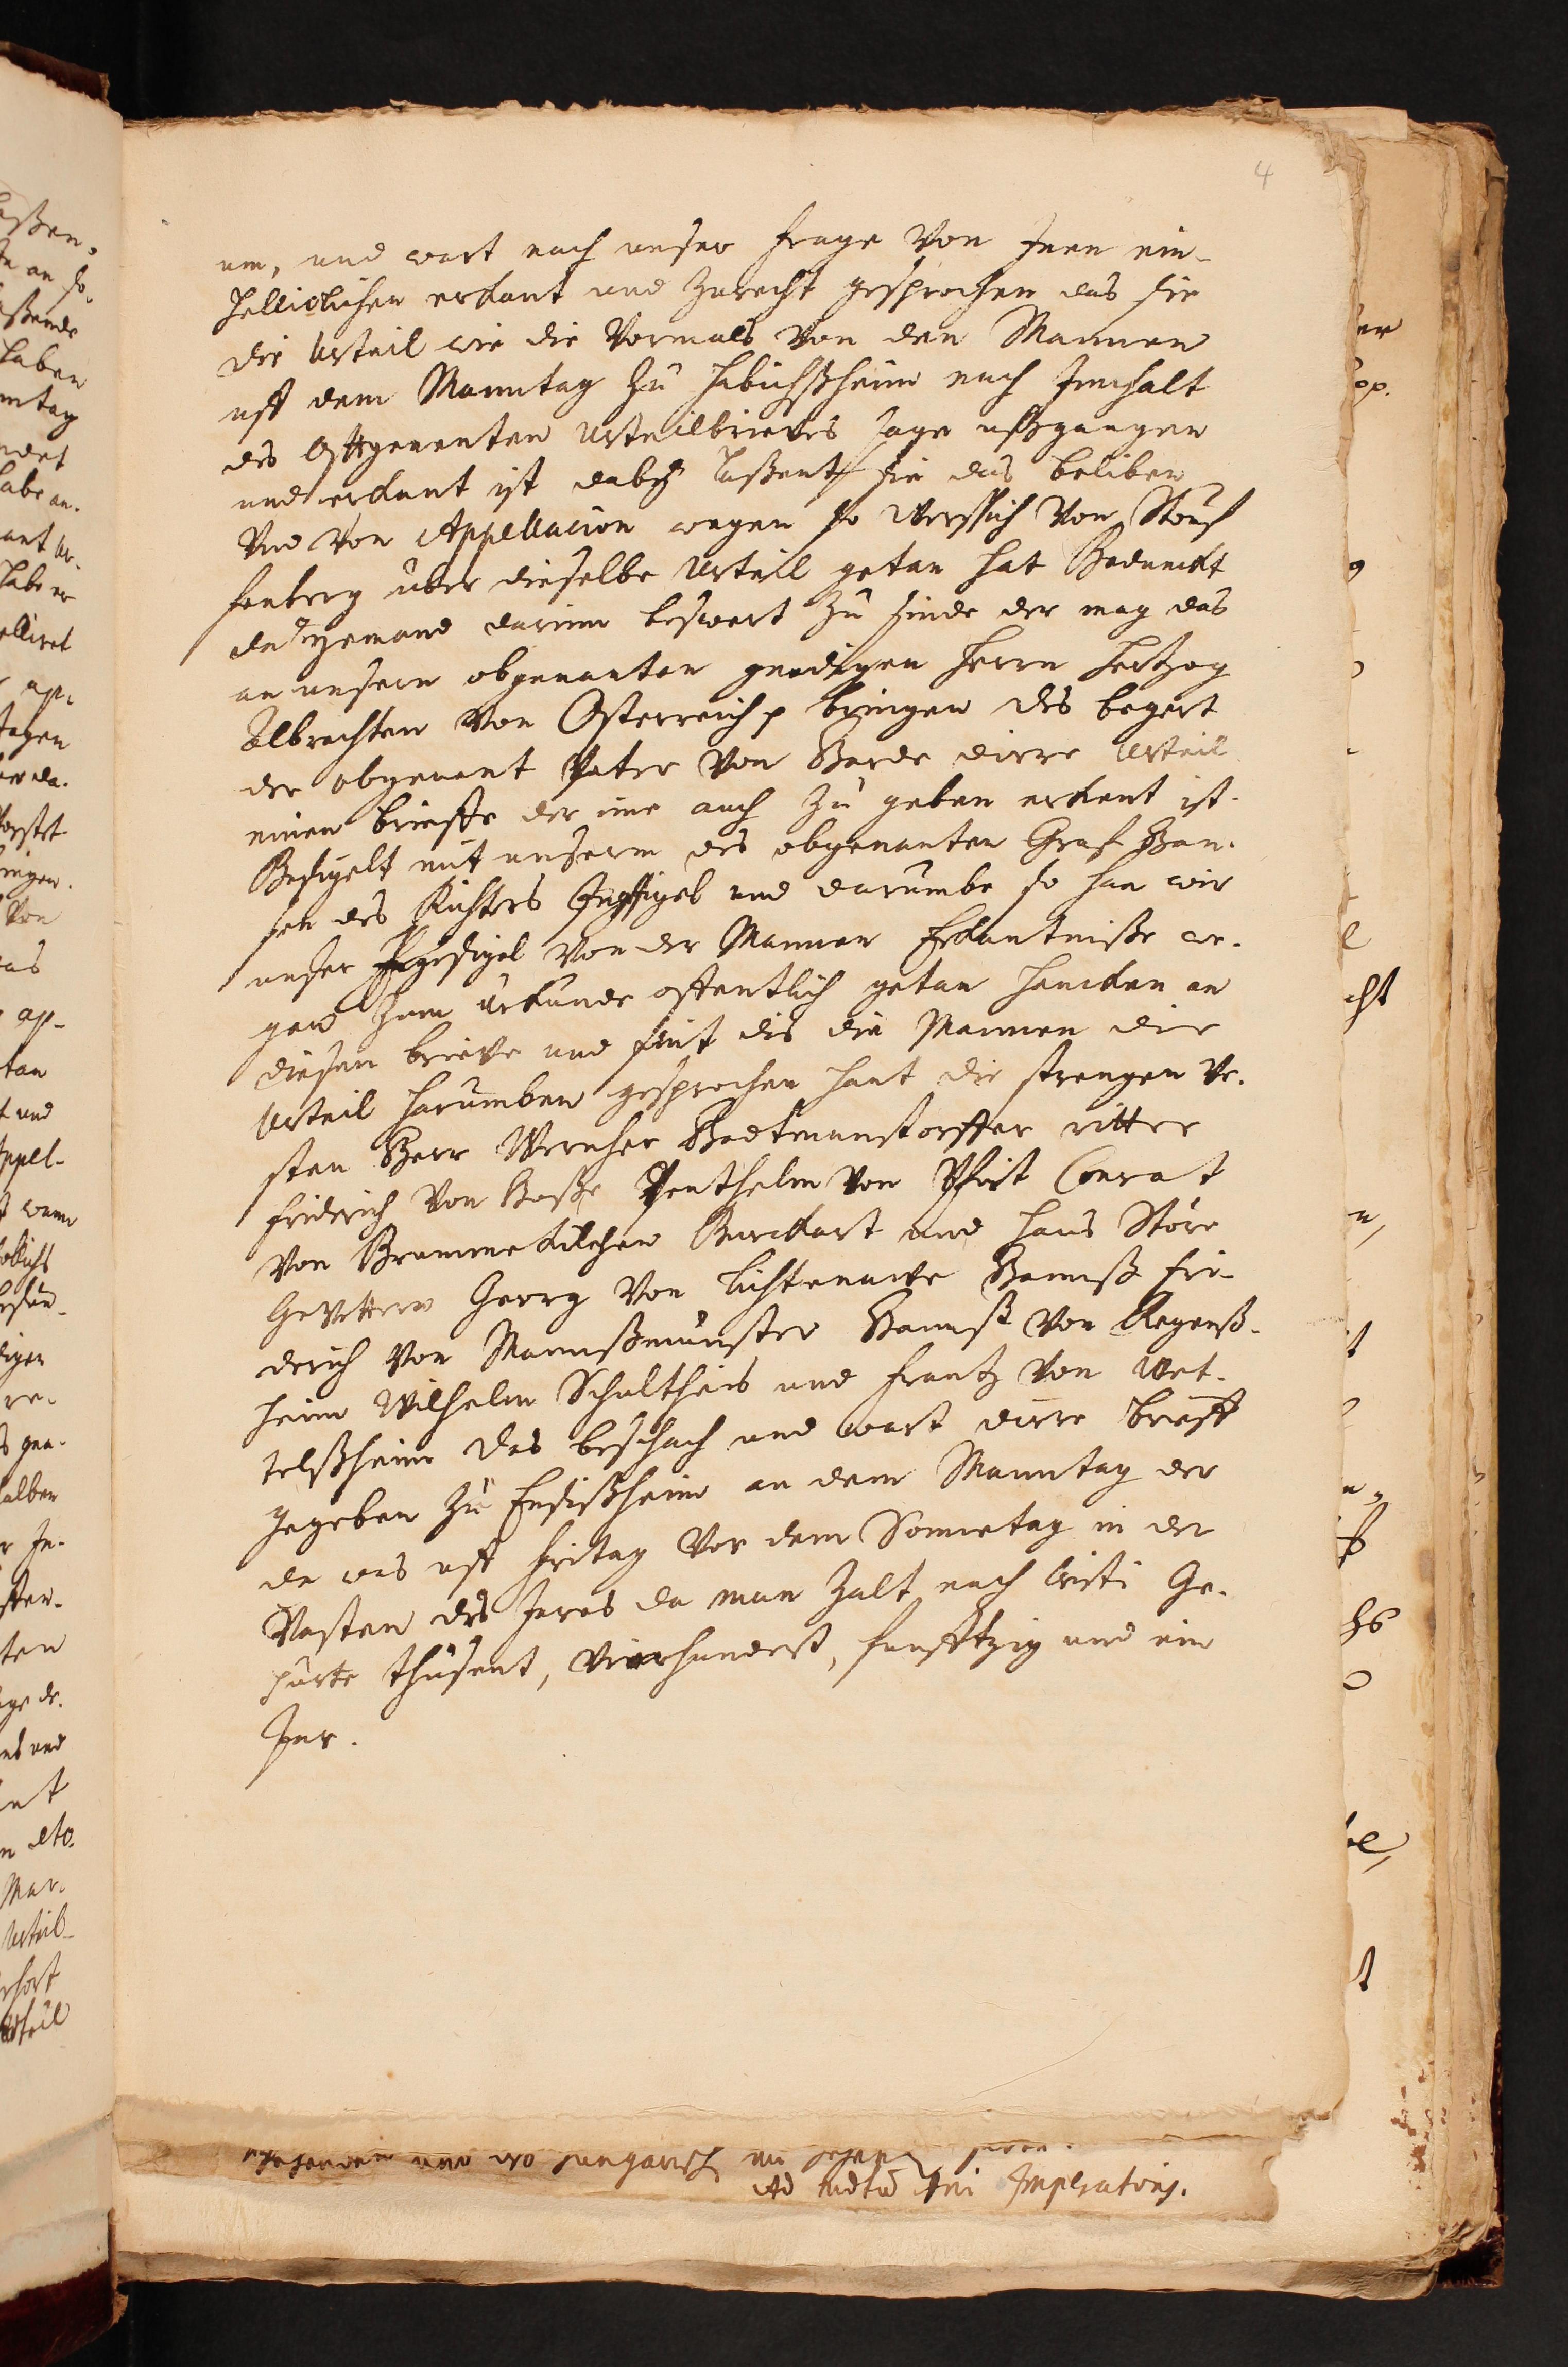 4
um, und wart nach unser frage von Inen ein-
helliclichen erkant und zurecht gesprochen das sie
die Urteil wie die vormals von den Mannen
uff dem Manntag zu Habichßheim nach Innhalt
des Obgenanten Urteilbrieves sage ußgangen
und erkant ist daby laßent sie das beliben
Und von Appellacion wegen so Werlich von Stouf
fenberg uber dieselbe Urteil getan hat Beduncket
da yemand darinn beswert zu sinde der mag das
an unsern obgenanten gnedigen herrn hertzog
Albrechten von Osterreich p bringen des begert
der obgenant Peter von Barde dirre Urteil
einen brieffe der ime auch zu geben erkent ist.
Besigelt mit unserm des obgenanten Graf Han-
sen des Richters Insigel und darumbe so han wir
unser Ingesigel von der Mannen Erkantniße we-
gen zum urkunde offentlich getan hencken an
diesen brieve und sint dis die Mannen die
Urteil harumben gesprochen hant die strengen ve-
sten Herr Wernher Hadtmanstorffer ritter
Friderich von Huße Penthelin von Pfirt Conrat
von Brummekilchen Burckart und Hans Störe
Gevettern Georg von Lichtenauwe Hannß Fri-
derich von Mannßmünster Hannß von Regenß-
heim Wilhelm Schultheis und Frantz von Wet-
telßheim Das beschach und wart dirre brieff
gegeben zu Ensißheim an dem Manntag der
da was uff fritag vor dem Sonnetag in der
Vasten des Jares da man zalt nach Cristi Ge-
purte thusent, vierhundert, funfftzig und ein
Jar.
Ad mdtū dni Imperatoris.